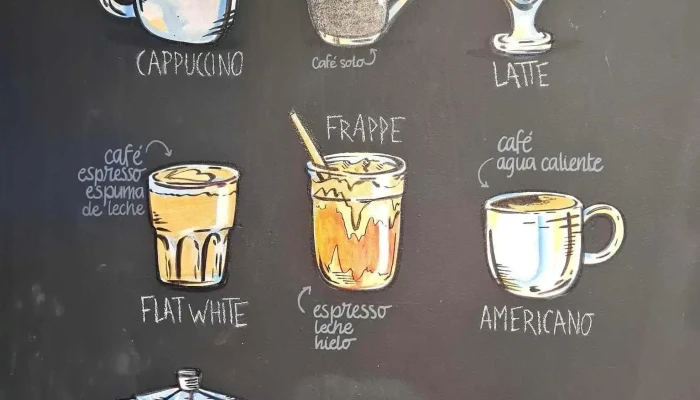 CAPPUCCINO
Café solo
LATTE
FRAPPE
café
espresso
espuma
de leche
café
agua caliente
FLAT WHITE
espresso
leche
hielo
AMERICANO